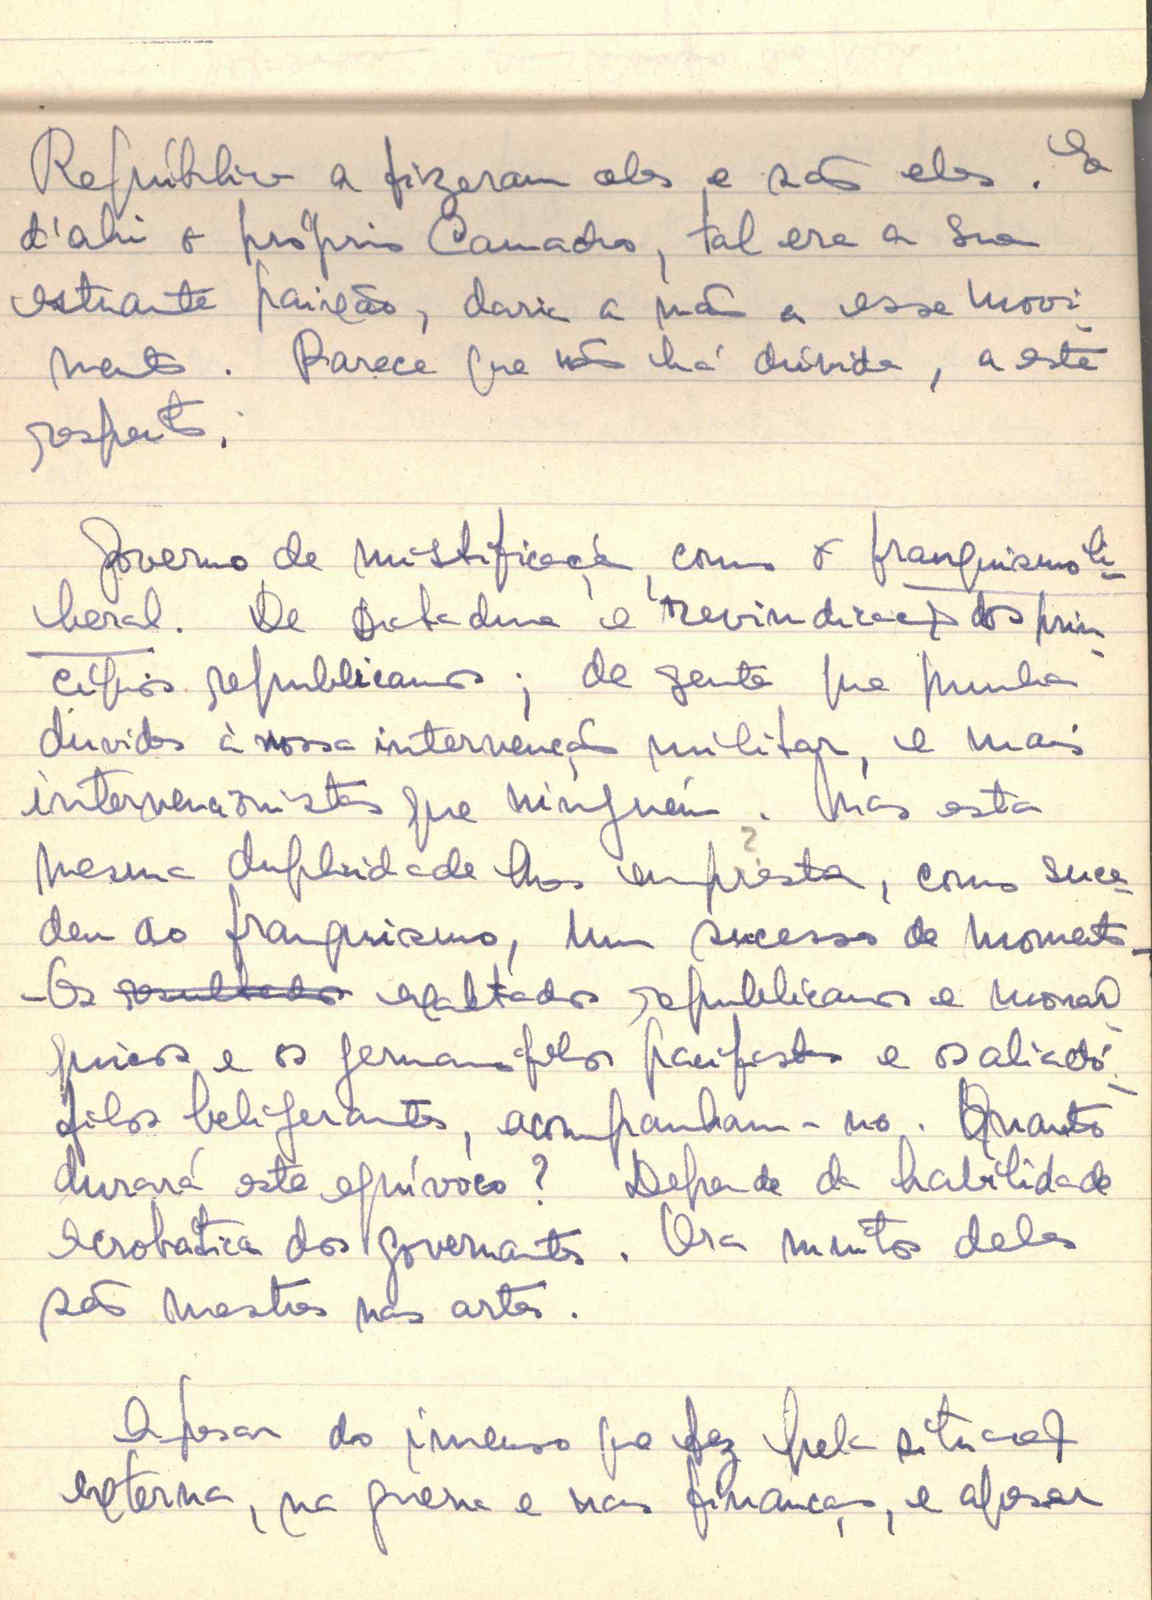 República a fizeram eles e são eles. Sa
d'ahi o próprio Camacho, tal era a sua
estuante paixão, daria a mão a esse movi-
mento. Parece que não há dúvida, a este
respeito.

Governo de mistificação, como o franquismo li-
beral. De ditadura e revindicação dos prin-
cípios republicanos; de gente que punha
duvidas à nossa intervenção militar, e mais
intervencionistas que ninguém. Mas esta
mesma duplicidade lhes emprésta, como suce-
deu ao franquismo, um sucesso de momento-
-Os resultados exaltados republicanos e monar
quicos e os germanófilos pacifistas e os aliadó-
filos beligerantes, acompanham-no. Quanto
durará este equívoco? Depende da habilidade
acrobática dos governantes. Ora muitos deles
são mestres nas artes.

Apesar do imenso que fez pela situação
externa, na guerra e nas finanças, e apesar